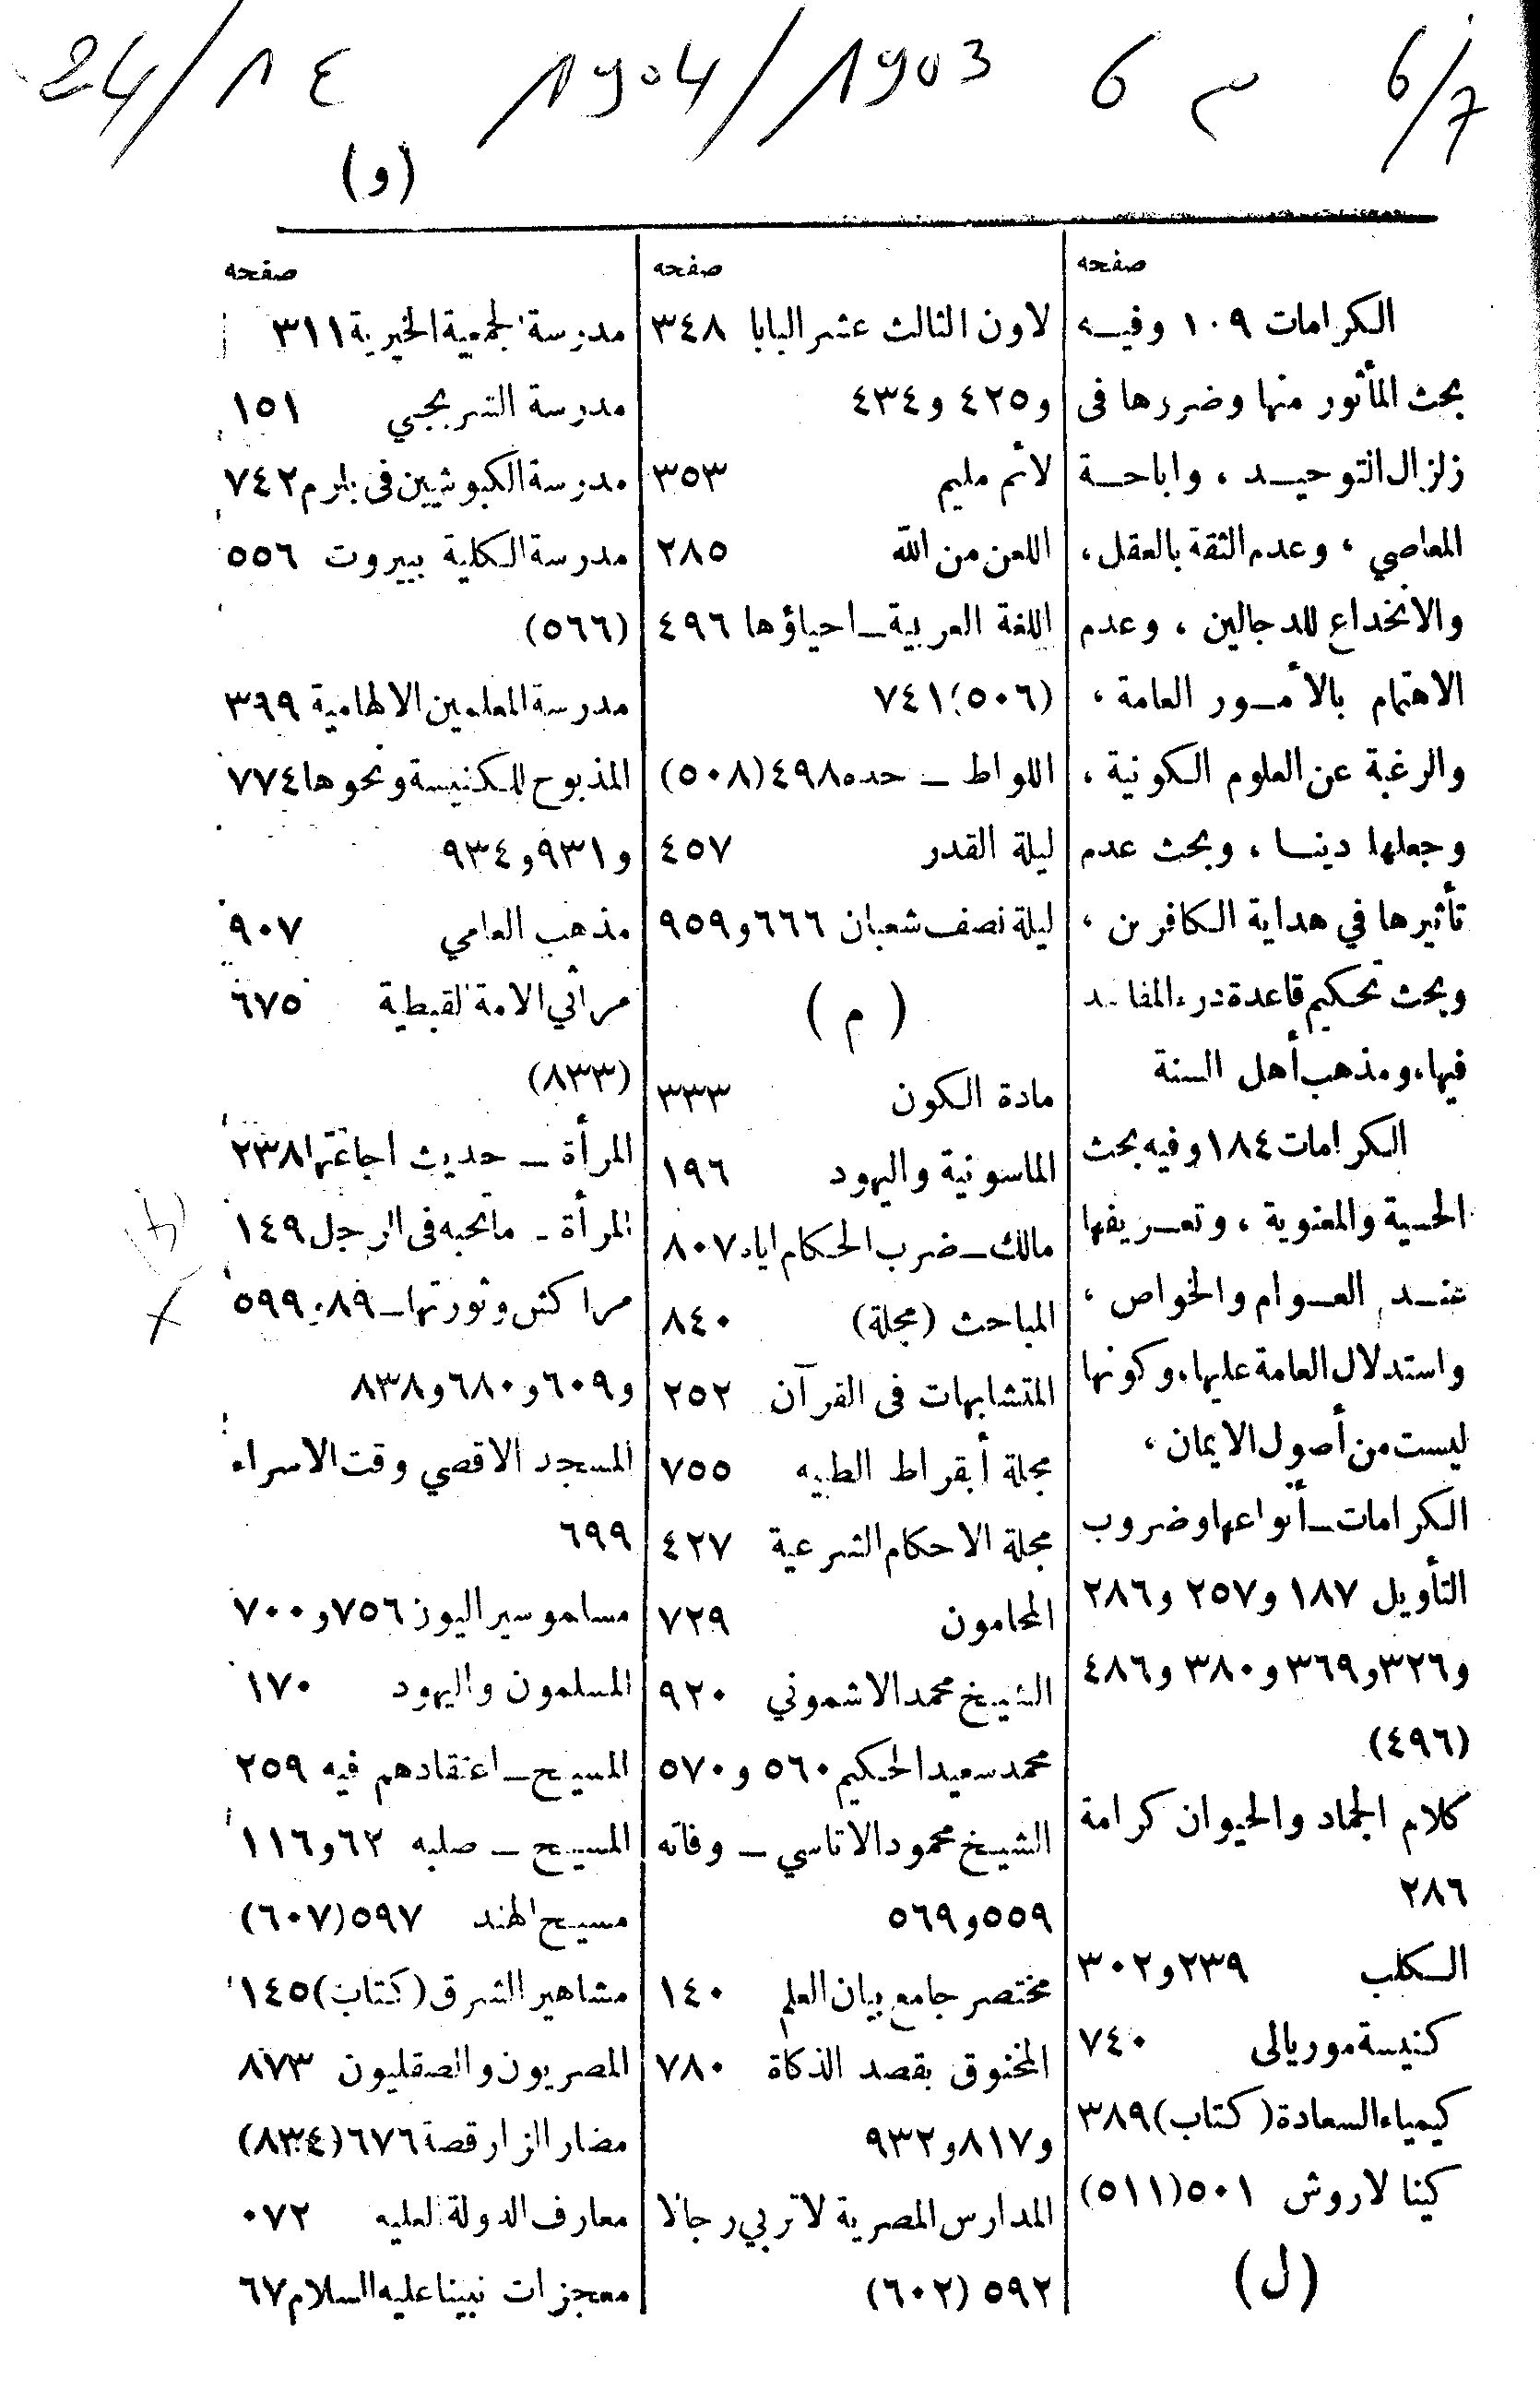 24/١٤ 1904/1903 م 6 6/7
(و)
صفحه
الكرامات ١٠٩ وفيه
بحث المأثور منها وضررها فى
زلزال التوحيد ، واباحة
المعاصي ، وعدم الثقة بالعقل ،
والانخداع للدجالين ، وعدم
الاهتمام بالأمور العامة ،
والرغبة عن العلوم الكونية ،
وجعلها دينا ، وبحث عدم
تأثيرها في هداية الكافرين ،
وبحث تحكيم قاعدة درء المفاسد
فيها، ومذهب أهل السنة
الكرامات ١٨٤ وفيه بحث
الحسية والمعنوية ، وتعريفها
عند العوام والخواص ،
واستدلال العامة عليها، وكونها
ليست من أصول الايمان ،
الكرامات ــ أنواعها وضروب
التأويل ١٨٧ و٢٥٧ و٢٨٦
و٣٢٦ و٣٦٩ و٣٨٠ و٤٨٦
(٤٩٦)
كلام الجماد والحيوان كرامة
٢٨٦
الكلب ٢٣٩ و٣٠٢
كنيسة موريالى ٧٤٠
كيمياء السعادة (كتاب) ٣٨٩
كينا لاروش ٥٠١ (٥١١)
(ل)
صفحه
لاون الثالث عشر البابا ٣٤٨
و٤٢٥ و٤٣٤
لائم مليم ٣٥٣
اللعن من الله ٢٨٥
اللغة العربية ــ احياؤها ٤٩٦
(٥٠٦) ٧٤١
اللواط ــ حده ٤٩٨ (٥٠٨)
ليلة القدر ٤٥٧
ليلة نصف شعبان ٦٦٦ و٩٥٩
(م)
مادة الكون ٣٣٣
الماسونية واليهود ١٩٦
مالك ــ ضرب الحكام اياه ٨٠٧
المباحث (مجلة) ٨٤٠
المتشابهات فى القرآن ٢٥٢
مجلة أبقراط الطبيه ٧٥٥
مجلة الاحكام الشرعية ٤٢٧
المحامون ٧٢٩
الشيخ محمد الاشموني ٩٢٠
محمد سعيد الحكيم ٥٦٠ و٥٧٠
الشيخ محمود الاتاسي ــ وفاته
٥٥٩ و٥٦٩
مختصر جامع بيان العلم ١٤٠
المخنوق بقصد الذكاة ٧٨٠
و٨١٧ و٩٣٢
المدارس المصرية لا تربي رجالا
٥٩٢ (٦٠٢)
صفحه
مدرسة الجمعية الخيرية ٣١١
مدرسة الشربجي ١٥١
مدرسة الكبوشيين فى بلرم ٧٤٢
مدرسة الكلية ببيروت ٥٥٦
(٥٦٦)
مدرسة المعلمين الالهامية ٣٦٩
المذبوح للكنيسة ونحوها ٧٧٤
و٩٣١ و٩٣٤
مذهب العامي ٩٠٧
مراثي الامة القبطية ٦٧٥
(٨٣٣)
المرأة ــ حديث اجاعتها ٢٣٨
المرأة ــ ما تحبه فى الرجل ١٤٩
مراكش وثورتها ــ ٨٩ ، ٥٩٩
و٦٠٩ و٦٨٠ و٨٣٨
المسجد الاقصي وقت الاسراء
٦٩٩
مسلمو سيراليون ٧٥٦ و٧٠٠
المسلمون واليهود ١٧٠
المسيح ــ اعتقادهم فيه ٢٥٩
المسيح ــ صلبه ٦٢ و١١٦
مسيح الهند ٥٩٧ (٦٠٧)
مشاهير الشرق (كتاب) ١٤٥
المصريون والصقليون ٨٧٣
مضار الزار قصة ٦٧٦ (٨٣٤)
معارف الدولة العليه ٠٧٢
معجزات نبينا عليه السلام ٦٧